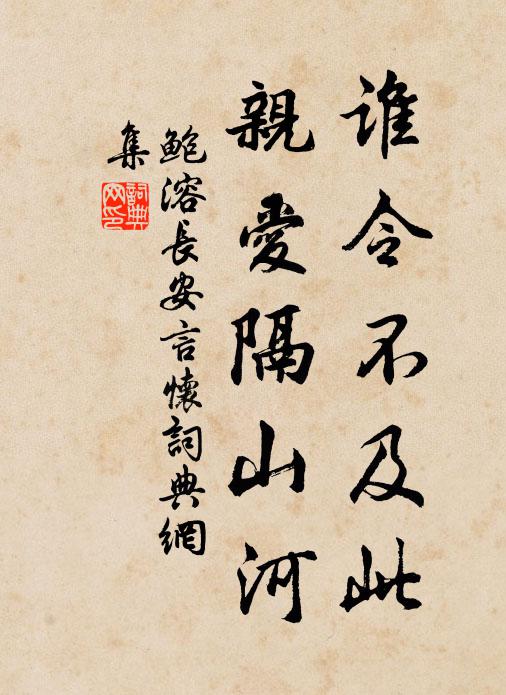 誰令不及此
親愛隔山河
鮑溶長安言懷詞典網
集
詞典
网印